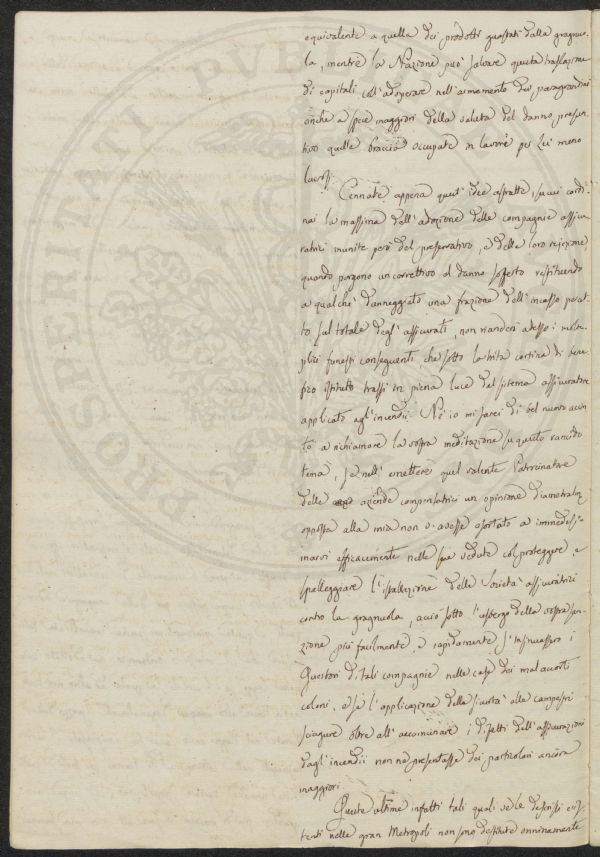 equivalente a quella dei prodotti guastati dalla gragnuo-
la, mentre la Nazione può salvare questa traslazione
di capitali coll'adoperare nell'armamento dei paragrandini
anche a spese maggiori della valuta del danno preven-
tivo quelle braccia occupate in lavori per lei meno
lucrosi.
Cennate appena quest'idee astratte, su cui cardi-
nai la massima dell'adozione delle compagnie assicu-
ratrici munite però del preservativo, e della loro rejezione
quando porgono un correttivo al danno sofferto restituendo
a qualche danneggiato una frazione dell'incasso porta-
to sul totale degl'assicurati, non riandrò adesso i molte-
plici funesti conseguenti che sotto la trita cortina di bene-
fico istituto trassi in piena luce del sistema assicuratore
applicato agl'incendii. Né io mi farei di bel nuovo accin-
to a richiamare la vostra meditazione su questo rancido
tema, se nell'emettere quel valente Patrocinatore
delle aziende compensatrici un opinione diametralm.
opposta alla mia non v'avesse esortato a immedesi-
marvi efficacemente nelle sue vedute col proteggere e
spalleggiare l'istallazione delle Società assicuratrici
contro la gragnuola, acciò sotto l'usbergo della vostra san-
zione più facilmente, e rapidamente s'insinuassero i
Questori di tali compagnie nelle case dei mal accorti
coloni, e se l'applicazione della sicurtà alle campestri
sciagure oltre all'accomunare i difetti dell'assicurazioni
dagl'incendii non ne presentasse dei particolari ancora
maggiori.
Queste ultime infatti tali quali ve le descrissi esis-
tenti nelle gran Metropoli non sono destitute onninamente
PROSPERITATI PVB